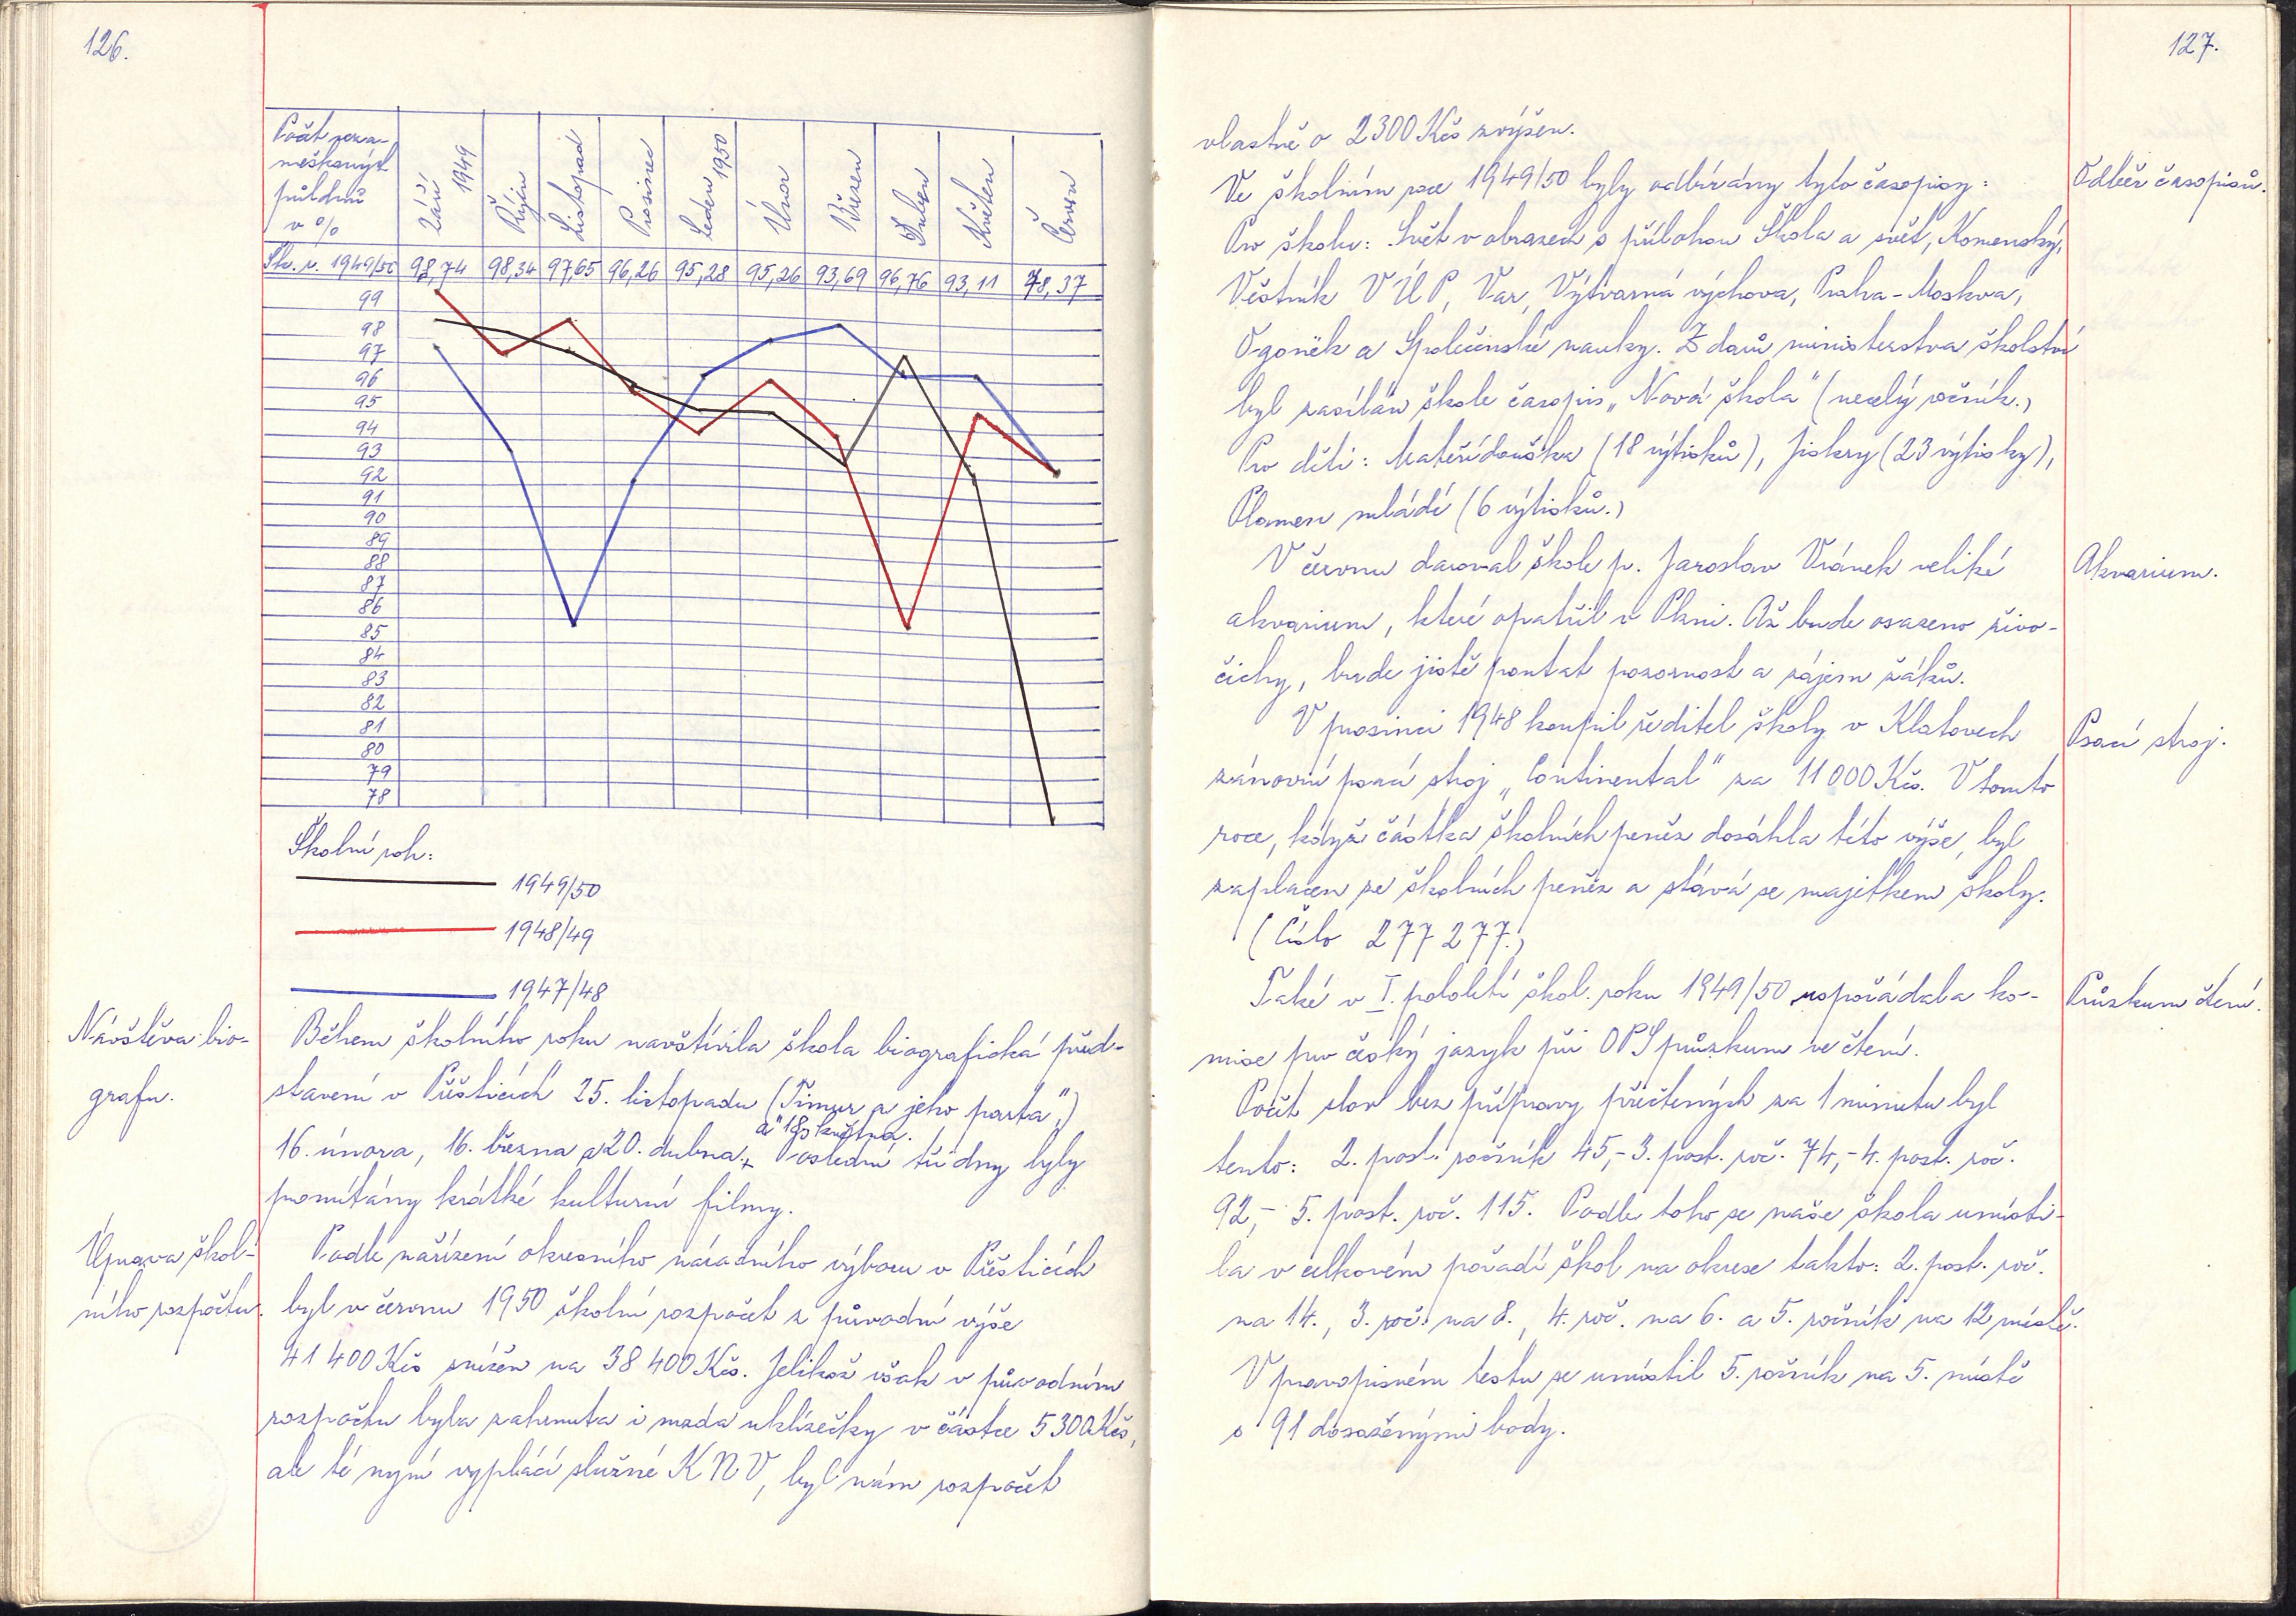 126.
Počet neza-
meškaných
půldnů
v %
Září 1949
Říjen
Listopad
Prosinec
Leden 1950
Únor
Březen
Duben
Květen
Červen
Šk. r. 1949/50 98,74 98,34 97,65 96,26 95,28 95,26 93,69 96,76 93,11 78,37
99
98
97
96
95
94
93
92
91
90
89
88
87
86
85
84
83
82
81
80
79
78
Školní rok:
1949/50
1948/49
1947/48
Návštěva bio-
grafu.
Během školního roku navštívila škola biografická před-
stavení v Přešticích 25. listopadu (Timur a jeho parta")
a 18. května.
16. února, 16. března a 20. dubna. + Poslední tři dny byly
promítány krátké kulturní filmy.
Úprava škol-
ního rozpočtu.
Podle nařízení okresního národního výboru v Přešticích
byl v červnu 1950 školní rozpočet z původní výše
41 400 Kčs snížen na 38 400 Kčs. Jelikož však v původním
rozpočtu byla zahrnuta i mzda uklizečky v částce 5 300 Kčs,
ale té nyní vyplácí služné K N V, byl nám rozpočet
127.
vlastně o 2300 Kčs zvýšen.
Odběr časopisů.
Ve školním roce 1949/50 byly odbírány tyto časopisy:
Pro školu: Svět v obrazech s přílohou Škola a svět, Komenský,
Věstník V Ú P, Var, Výtvarná výchova, Praha - Moskva,
Ogoněk a Společenské nauky. Z darů ministerstva školství
byl zasílán škole časopis „Nová škola" (necelý ročník.)
Pro děti: Mateřídouška (18 výtisků), Jiskry (23 výtisky),
Plamen mládí (6 výtisků.)
Akvarium.
V červnu daroval škole p. Jaroslav Vránek veliké
akvarium, které opatřil v Plzni. Až bude osazeno živo-
čichy, bude jistě poutat pozornost a zájem žáků.
Psací stroj.
V prosinci 1948 koupil ředitel školy v Klatovech
zánovní psací stroj „Continental" za 11 000 Kčs. V tomto
roce, když částka školních peněz dosáhla této výše, byl
zaplacen ze školních peněz a stává se majetkem školy.
(Číslo 277 277.)
Průzkum čtení.
Také v I. pololetí škol. roku 1949/50 uspořádala ko-
mise pro český jazyk při OPS průzkum ve čtení.
Počet slov bez přípravy přečtených za 1 minutu byl
tento: 2. post. ročník 45,- 3. post. roč. 74,- 4. post. roč.
92,- 5. post. roč. 115. Podle toho se naše škola umísti-
la v celkovém pořadí škol na okrese takto: 2. post. roč.
na 14., 3. roč. na 8., 4. roč. na 6. a 5. ročník na 12 místě.
V pravopisném testu se umístil 5. ročník na 5. místě
s 91 dosaženými body.